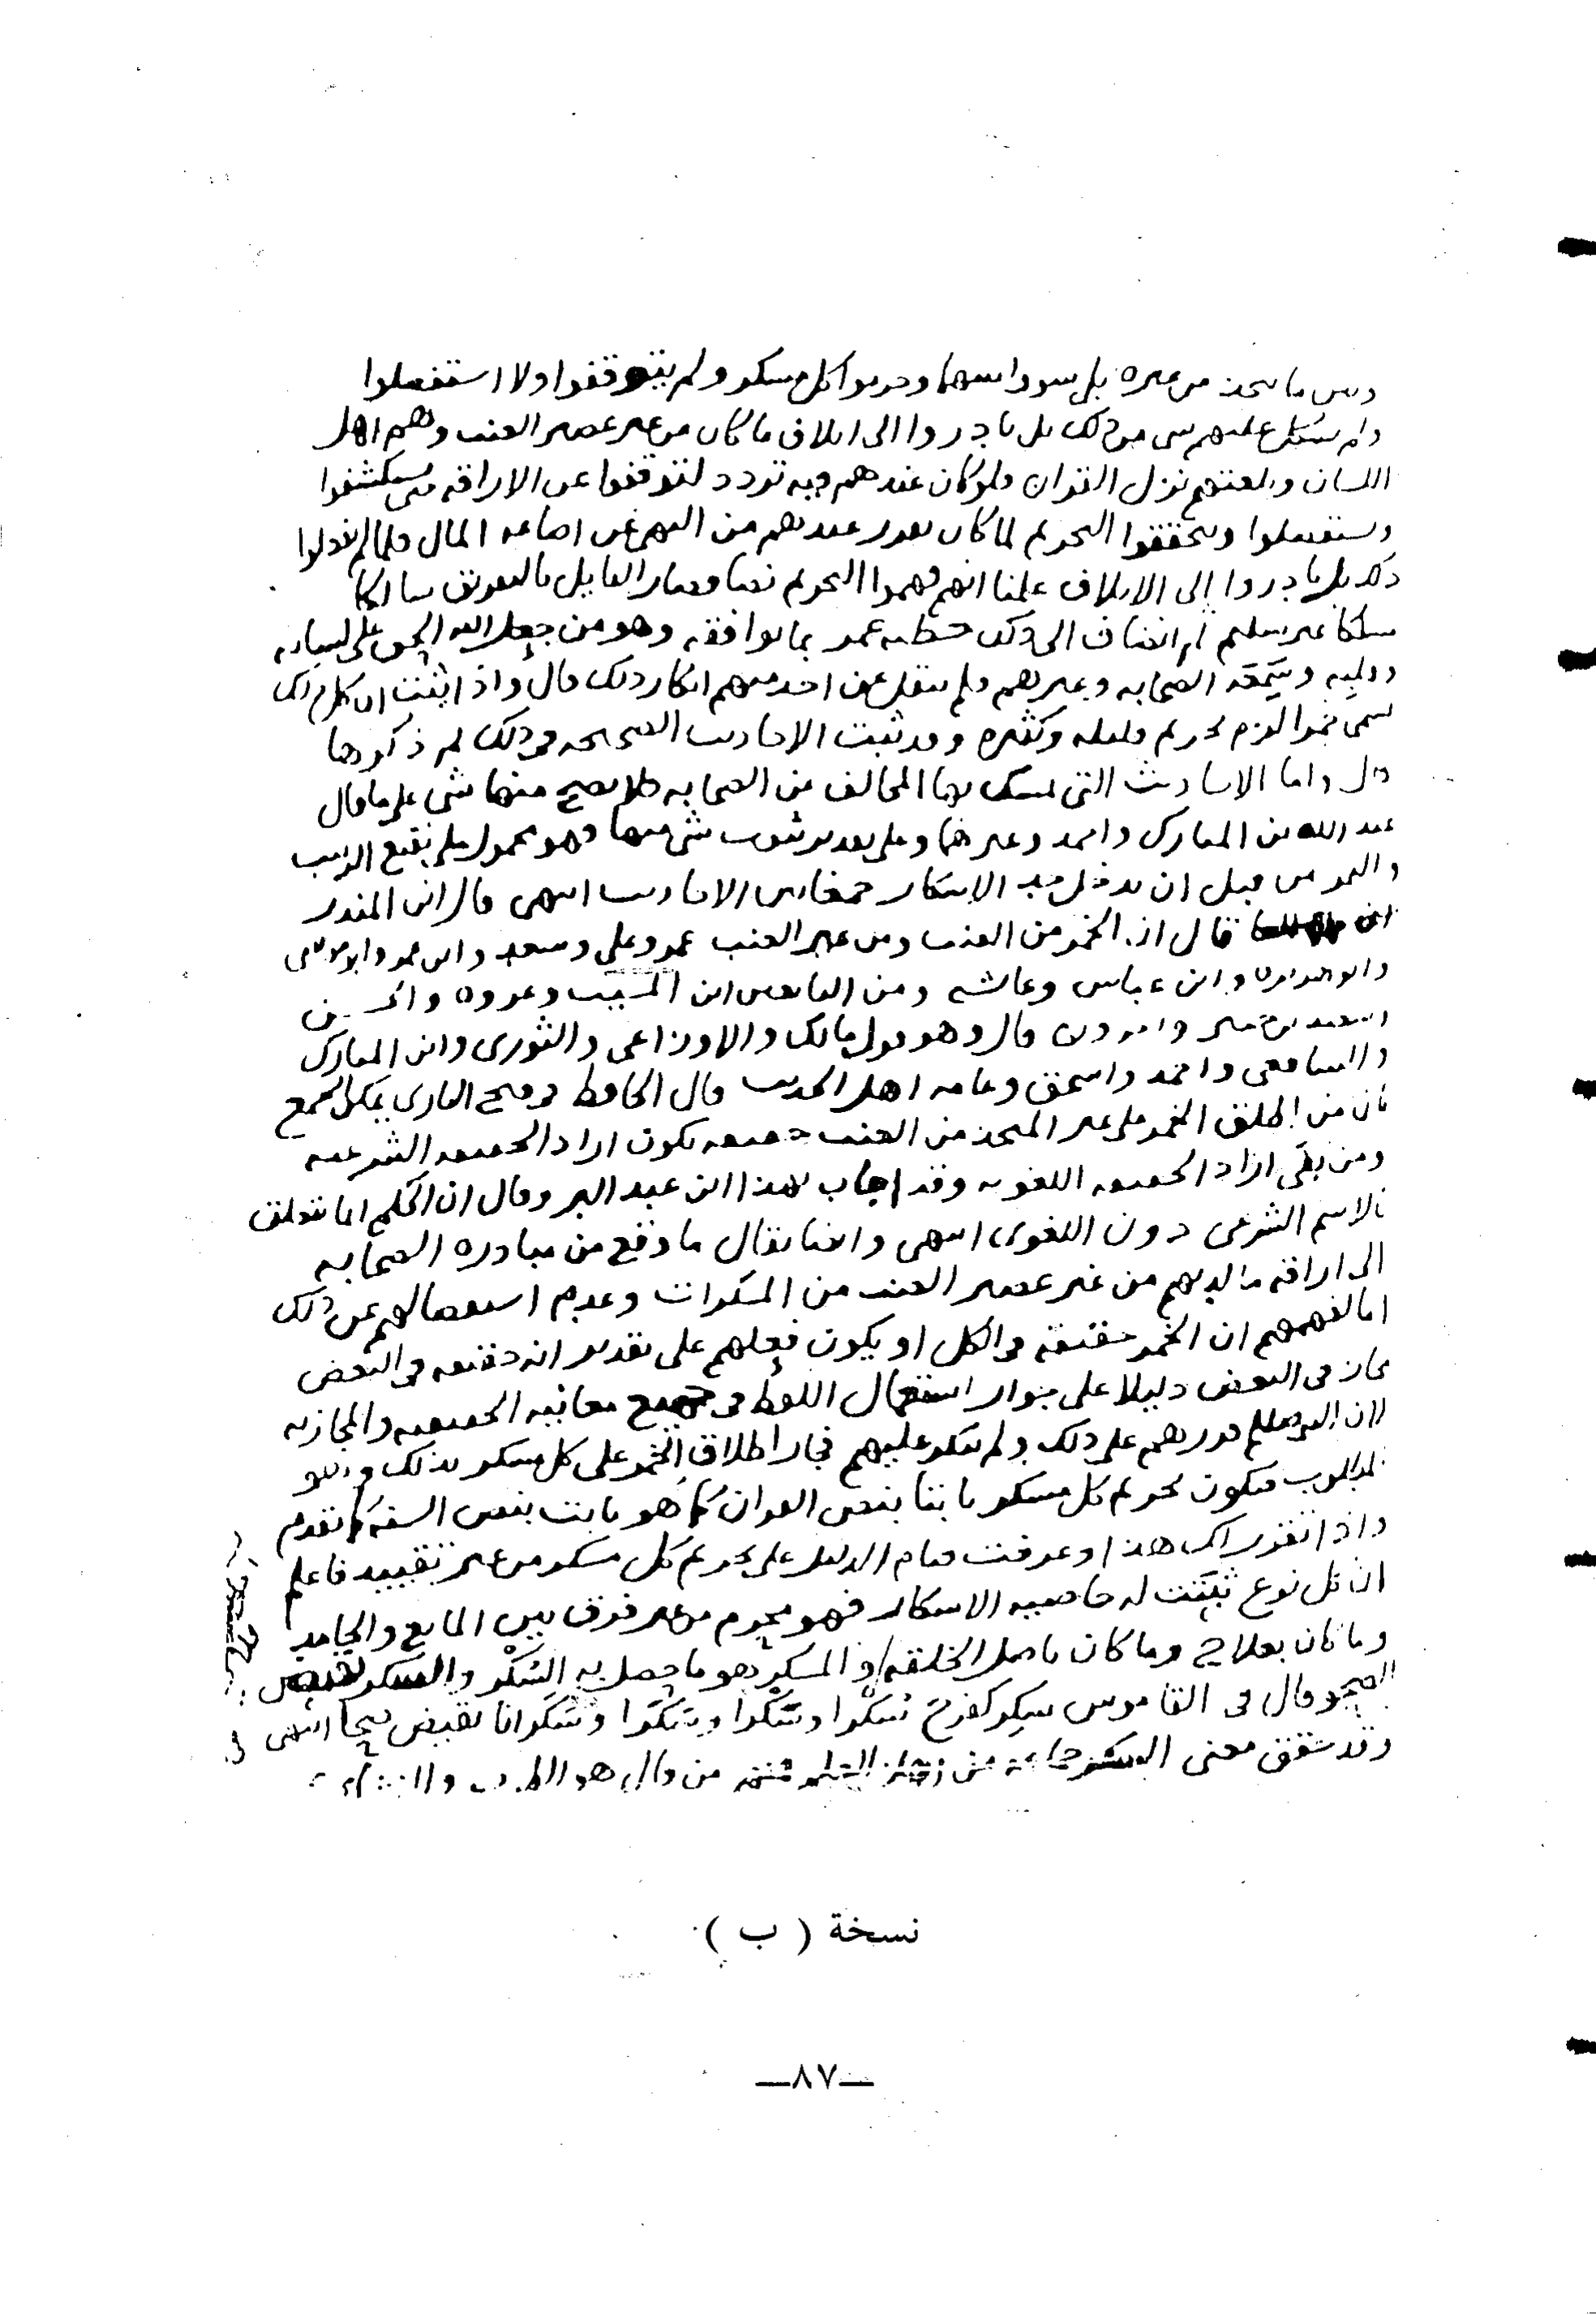 وبين ما يتخذ من غيره بل سووا بينهما وحرموا كل مسكر ولم يتوقفوا ولا استفصلوا
ولم يشكل عليهم شي من ذلك بل بادروا الى اتلاف ما كان من غير عصير العنب وهم اهل
اللسان وبلغتهم نزل القران ولو كان عندهم فيه تردد لتوقفوا عن الاراقه حتى يستكشفوا
ويستفصلوا ويتحققوا التحريم لما كان تقرر عندهم من النهي عن اضاعه المال فلما لم يفعلوا
ذلك بل بادروا الى الاتلاف علمنا انهم فهموا التحريم نصا فصار القايل بالتفريق سالكا
مسلكا غير سليم ثم انضاف الى ذلك خطبه عمر بما يوافقه وهو ممن جعل الله الحق على لسانه
وقلبه وسمعه الصحابه وغيرهم ولم ينقل عن احد منهم انكار ذلك قال واذا ثبت ان كل ذلك
يسمى خمرا لزم تحريم قليله وكثيره وقد ثبتت الاحاديث الصحيحه في ذلك ثم ذكرها
قال واما الاحاديث التي تمسك بها المخالف عن الصحابه فلا يصح منها شي على ما قال
عبد الله بن المبارك واحمد وغيرهما وعلى تقدير ثبوت شي منها فهو محمول على نقيع الزبيب
والتمر من قبل ان يدخل حد الاسكار جمعا بين الاحاديث انتهى قال ابن المنذر
قال ان الخمر من العنب ومن غير العنب عمر وعلي وسعد وابن عمر وابو موسى
وابو هريره وابن عباس وعائشه ومن التابعين ابن المسيب وعروه والحسن
وسعيد بن جبير واخرون قال وهو قول مالك والاوزاعي والثوري وابن المبارك
والشافعي واحمد واسحق وعامه اهل الحديث قال الحافظ في فتح الباري يمكن الجمع
بان من اطلق الخمر على غير المتخذ من العنب حقيقه يكون اراد الحقيقه الشرعيه
ومن نفى اراد الحقيقه اللغويه وقد اجاب بهذا ابن عبد البر وقال ان الحكم انما يتعلق
بالاسم الشرعي دون اللغوي انتهى وايضا يقال ما وقع من مبادره الصحابه
الى اراقه ما لديهم من غير عصير العنب من المسكرات وعدم استفصالهم عن ذلك
اما لفهمهم ان الخمر حقيقه في الكل او يكون فعلهم على تقدير انه حقيقه في البعض
مجاز في البعض دليلا على جواز استعمال اللفظ في جميع معانيه الحقيقيه والمجازيه
لان النبي صلعم قررهم على ذلك ولم ينكر عليهم فجاز اطلاق الخمر على كل مسكر بذلك وهو
المطلوب فيكون تحريم كل مسكر ثابتا بنص القران كما هو ثابت بنص السنه كما تقدم
واذا تقرر لك هذا وعرفت قيام الدليل على تحريم كل مسكر من غير تقييد فاعلم
ان كل نوع ثبتت له خاصيه الاسكار فهو محرم من غير فرق بين المايع والجامد
وما كان بعلاج وما كان باصل الخلقه والمسكر هو ما حصل به السُّكْر والسكر نقيض
الصحو قال في القاموس سَكِر كفرح سُكْرا وسَكْرا وسَكَرا وسَكَرانا نقيض صحا انتهى
وقد حقق معنى السكر جماعه من
نسخة ( ب )
—٨٧—